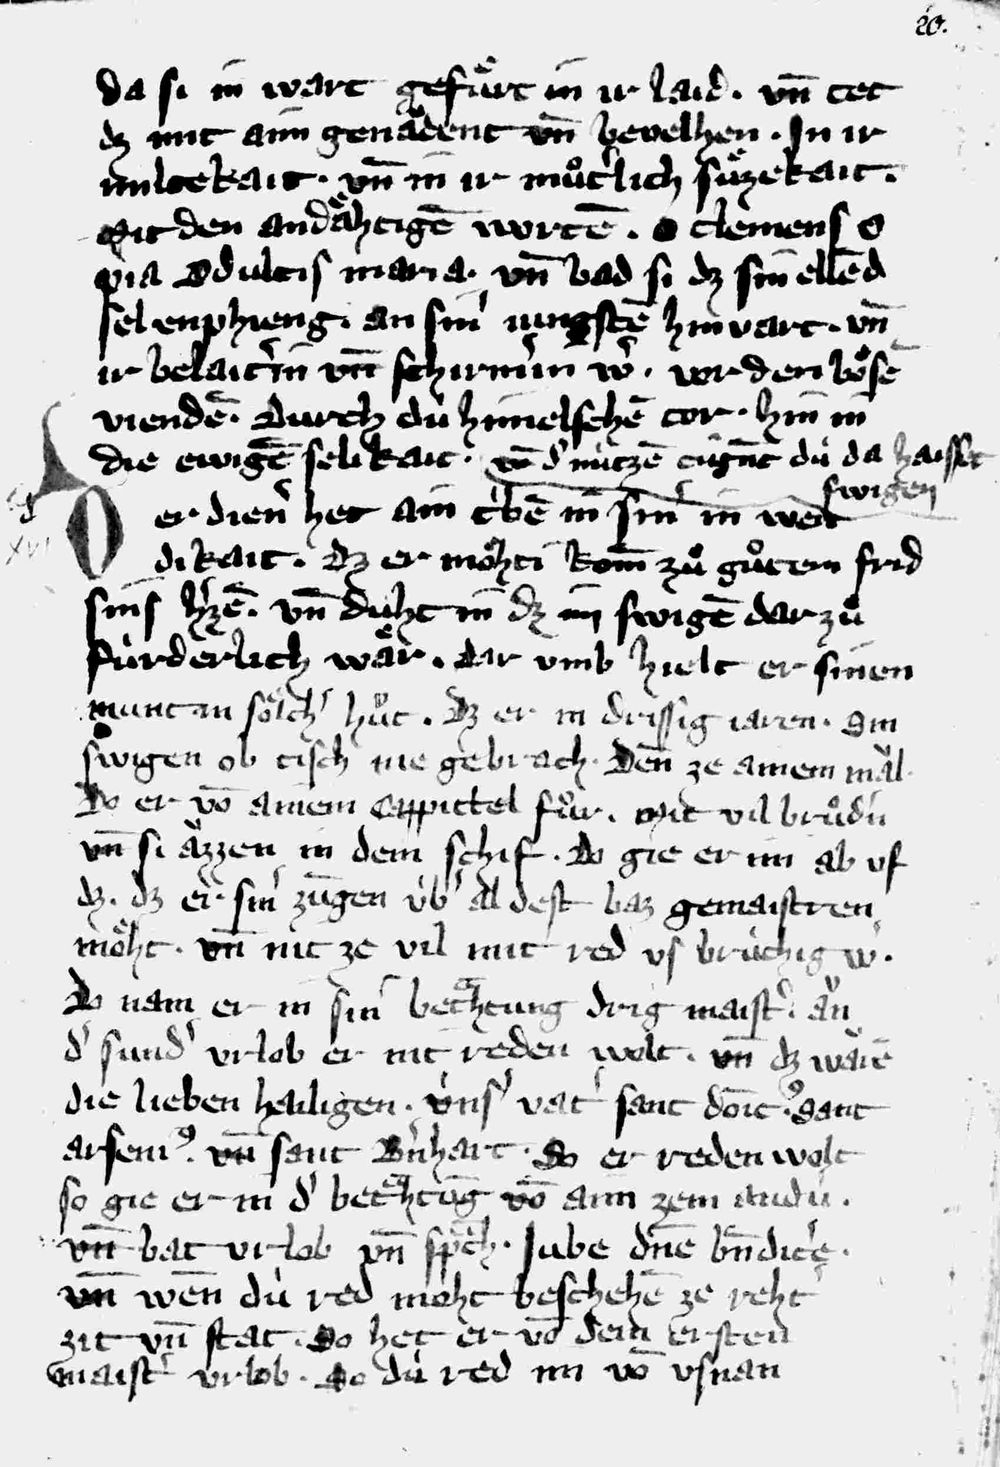 20.
da si in wart gefuͤrt in ir laid. vn̄ tet
dz mit aim genaͤdent vn̄ bevelhen. In ir
miltekait. vn̄ in ir muͦtˀlich suͤzekait.
Mit den andaͤhtigē wortē. O clemens O
pia O dulcis maria. vn̄ bad si dz sin ellēd
sel enphieng. an sinˀ iungstē hinvart. vn̄
ir belaitˀin vn̄ schirmˀin wˀ. vor den boͤsē
viendē. Durch dù himelschē tor. hin in
die ewigē selikait. vn̄ dˀ nùtzē tùgn̄t dù da haisset
swigen
XVI
Der dienˀ het ain tˀbē in sinˀ in wen
dikait. Dz er moͤhti kom̄ zuͦ guͦtem frid
sins hˀzē. vn̄ duht in dz im swigē dar zuͦ
fùrderlich waͤr. Dar vmb hielt er sinen
munt in soͤlchˀ huͦt. Dz er in drissig iaren. Sin
swigen ob tisch nie gebrach. Den̄ ze ainem mâl.
Do er vō ainem Cappittel fuͦr. Mit vil bruͦdˀn
vn̄ si aͤzzen in dem schif. Do gie er im ab vf
dz. dz er sinˀ zungen ùbˀ al dest baz gemaistren
moͤht. vn̄ nit ze vil mit red vs brùchig wˀ.
Do nam er in sinˀ betrahtung drig maistˀ. ân
dˀ sundˀ vrlob er nit reden wolt. vn̄ dz waͤrē
die lieben heiligen. vnsˀ vatˀ sant dōicꝰ. Sant
arseniꝰ. vn̄ sant Bˀnhart. So er reden wolt
so gie er in dˀ betrahtūg vō aim zem andˀn.
vn̄ bat vrlob vn̄ sp̄ch. Jube dn̄e bn̄dicˀe.
vn̄ wen̄ dù red moͤht beschehē ze rehtˀ
zit vn̄ stat. So het er vō dem ersten
maistˀ vrlob. So dù red im vō vsnan